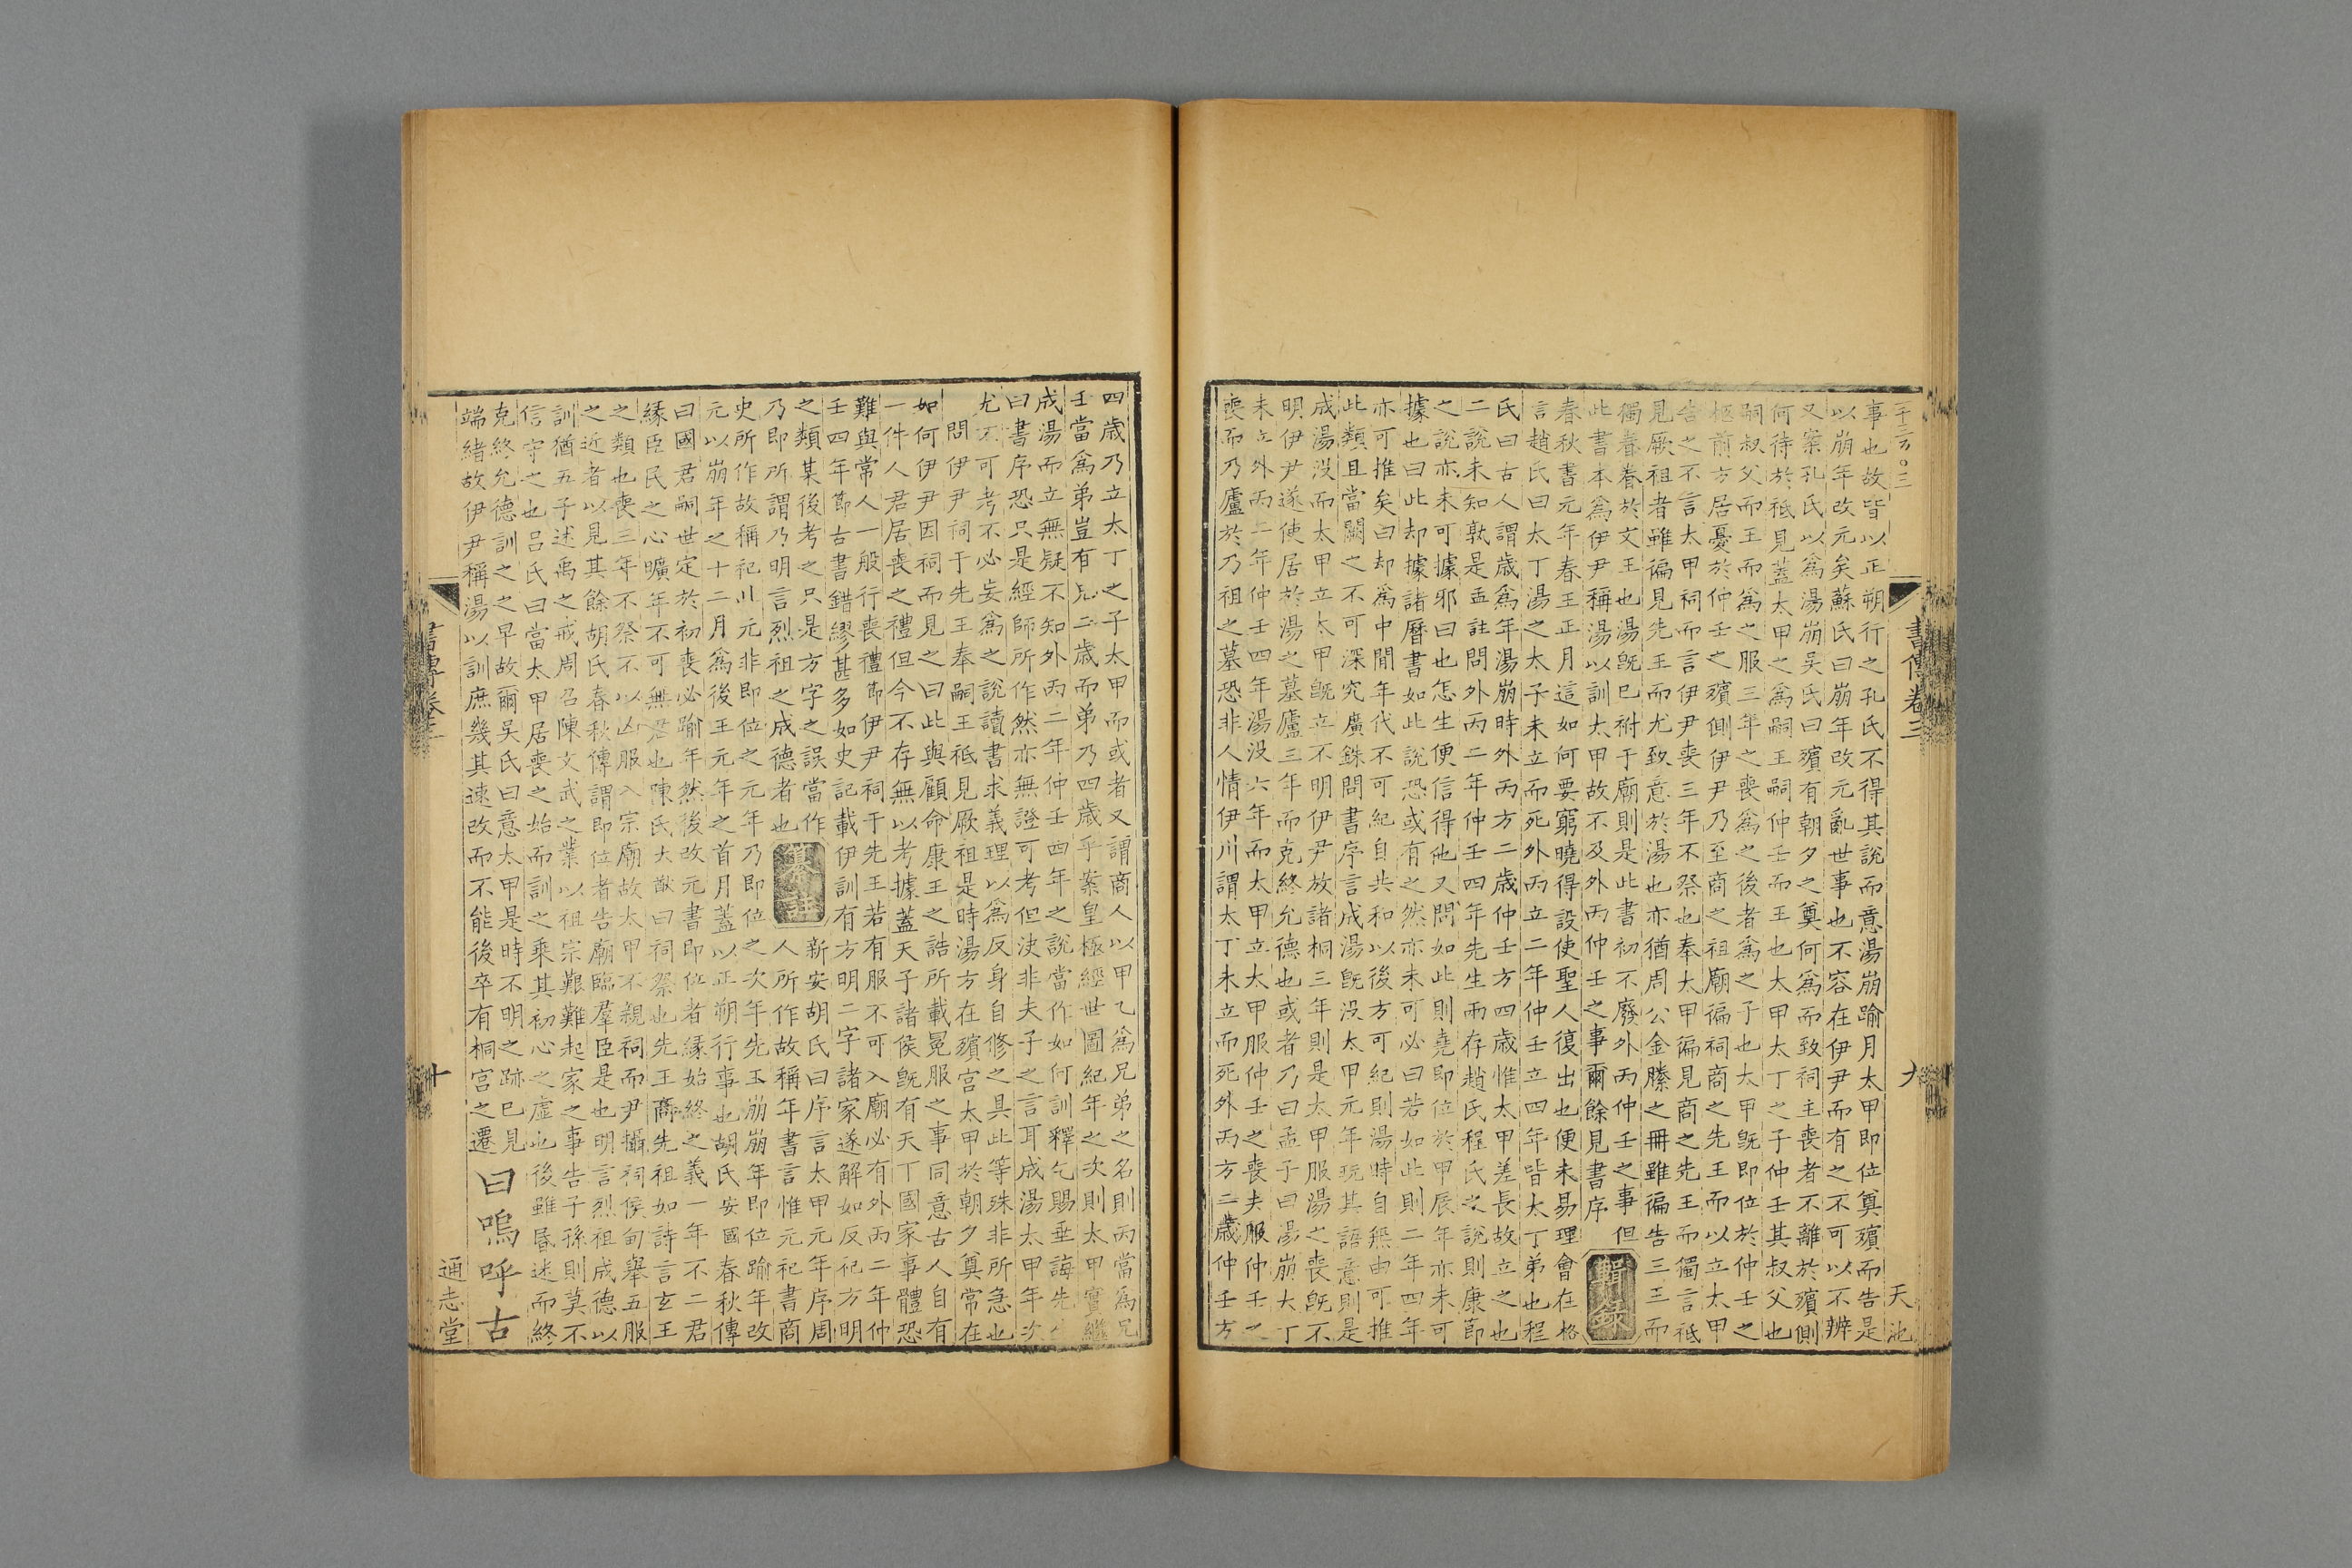 事也故皆以正朔行之孔氏不得其說而意湯崩踰月太甲即位奠殯而告是
以崩年改元矣蘇氏曰崩年改元亂世事也不容在伊尹而有之不可以不辨
又案孔氏以爲湯崩吳氏曰殯有朝夕之奠何爲而致祠主喪者不離於殯側
何待於祗見蓋太甲之爲嗣王嗣仲壬而王也太甲太丁之子仲壬其叔父也
嗣叔父而王而爲之服三年之喪爲之後者爲之子也太甲旣即位於仲壬之
柩前方居憂於仲壬之殯側伊尹乃至商之祖廟徧祠商之先王而以立太甲
告之不言太甲祠而言伊尹喪三年不祭也奉太甲徧見商之先王而獨言祗
見厥祖者雖徧見先王而尤致意於湯也亦猶周公金縢之冊雖徧告三王而
獨眷眷於文王也湯旣已祔于廟則是此書初不廢外丙仲壬之事但
此書本爲伊尹稱湯以訓太甲故不及外丙仲壬之事爾餘見書序
輯錄
春秋書元年春王正月這如何要窮曉得設使聖人復出也便未易理會在格
言趙氏曰太丁湯之太子未立而死外丙立二年仲壬立四年皆太丁弟也程
氏曰古人謂歲爲年湯崩時外丙方二歲仲壬方四歲惟太甲差長故立之也
二說未知孰是孟註問外丙二年仲壬四年先生兩存趙氏程氏之說則康節
之說亦未可據邪曰也怎生便信得他又問如此則堯即位於甲辰年亦未可
據也曰此却據諸曆書如此說恐或有之然亦未可必曰若如此則二年四年
亦可推矣曰却爲中閒年代不可紀自共和以後方可紀則湯時自無由可推
此類且當闕之不可深究廣銖問書序言成湯旣没太甲元年玩其語意則是
成湯没而太甲立太甲旣立不明伊尹放諸桐三年則是太甲服湯之喪旣不
明伊尹遂使居於湯之墓廬三年而克終允德也或者乃曰孟子曰湯崩太丁
未立外丙二年仲壬四年湯没六年而太甲立太甲服仲壬之喪夫服仲壬之
喪而乃廬於乃祖之墓恐非人情伊川謂太丁未立而死外丙方二歲仲壬方
書傳卷三
九
天池
四歲乃立太丁之子太甲而或者又謂商人以甲乙爲兄弟之名則丙當爲兄
壬當爲弟豈有兄二歲而弟乃四歲乎案皇極經世圖紀年之次則太甲實繼
成湯而立無疑不知外丙二年仲壬四年之說當作如何訓釋乞賜垂誨先生
曰書序恐只是經師所作然亦無證可考但決非夫子之言耳成湯太甲年次
尤不可考不必妄爲之說讀書求義理以爲反身自修之具此等殊非所急也
問伊尹祠于先王奉嗣王祗見厥祖是時湯方在殯宮太甲於朝夕奠常在
如何伊尹因祠而見之曰此與顧命康王之誥所載冕服之事同意古人自有
一件人君居喪之禮但今不存無以考據蓋天子諸侯旣有天丁國家事體恐
難與常人一般行喪禮節伊尹祠于先王若有服不可入廟必有外丙二年仲
壬四年節古書錯繆甚多如史記載伊訓有方明二字諸家遂解如反祀方明
之類某後考之只是方字之誤當作
乃即所謂乃明言烈祖之成德者也
纂註
新安胡氏曰序言太甲元年序周
人所作故稱年書言惟元祀書商
史所作故稱祀以元非即位之元年乃即位之次年先王崩崩年即位踰年改
元以崩年之十二月爲後王元年之首月蓋以正朔行事也胡氏安國春秋傳
曰國君嗣世定於初喪必踰年然後改元書即位者緣始終之義一年不二君
緣臣民之心曠年不可無君也陳氏大猷曰祠祭也先王商先祖如詩言玄王
之類也喪三年不祭不以凶服入宗廟故太甲不親祠而尹攝祠侯甸羣五服
之近者以見其餘胡氏春秋傳謂即位者告廟臨羣臣是也明言烈祖成德以
訓猶五子述禹之戒周召陳文武之業以祖宗艱難起家之事告子孫則莫不
信守之也吕氏曰當太甲居喪之始而訓之乘其初心之虛也後雖昏迷而終
克終允德訓之之早故爾吳氏曰意太甲是時不明之跡已見
曰嗚呼古
端緖故伊尹稱湯以訓庶幾其速改而不能後卒有桐宮之遷
書傳卷三
十
通志堂